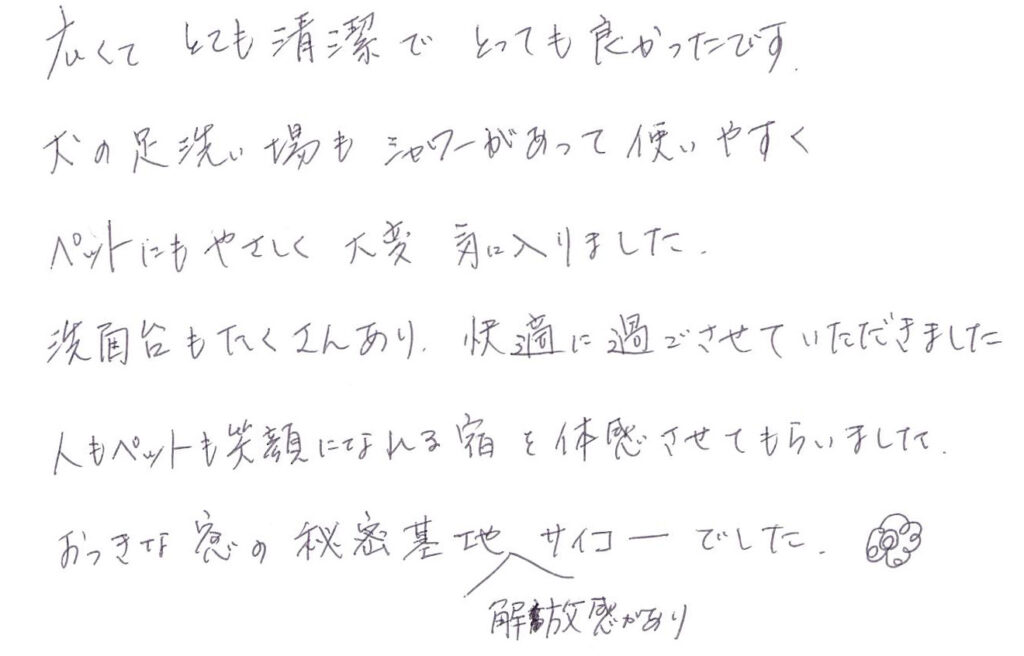 広くて とても清潔で とっても良かったです.
犬の足洗い場も シャワーがあって 使いやすく
ペットにもやさしく 大変 気に入りました.
洗面台もたくさんあり. 快適に過ごさせていただきました
人もペットも笑顔になれる宿を体感させてもらいました.
おっきな窓の秘密基地 サイコーでした.
解放感があり